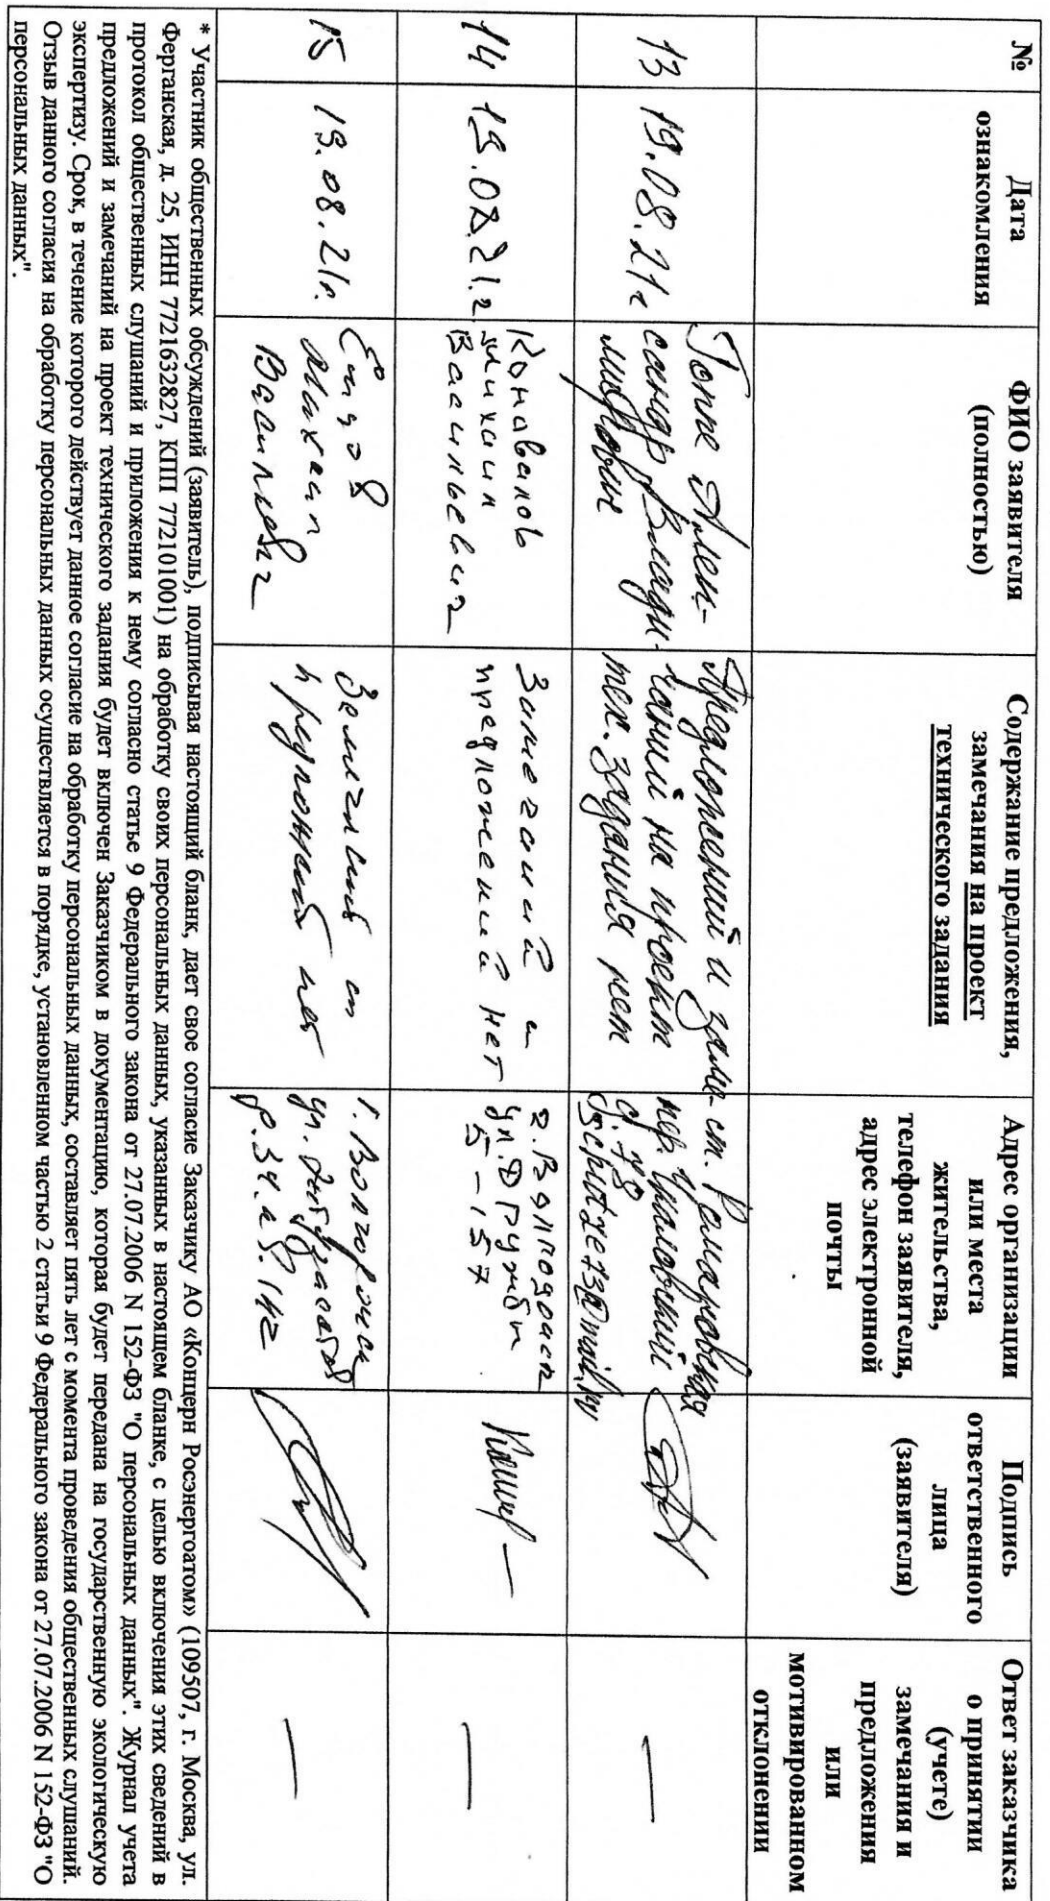 №
Дата
ознакомления
ФИО заявителя
(полностью)
Содержание предложения,
замечания на проект
технического задания
Адрес организации
или места
жительства,
телефон заявителя,
адрес электронной
почты
Подпись
ответственного
лица
(заявителя)
Ответ заказчика
о принятии
(учете)
замечания и
предложения
или
мотивированном
отклонении
13
19.08.21г
Гоппе Алек-
сандр Влади-
мирович
Предложений и заме-
чаний на проект
тех. задания нет
ст. Романовская
пер Чкаловский
д. 78
—
14
19.08.21.г
Коновалов
Михаил
Васильевич
Замечаний и
предложений нет
г. Волгодонск
ул. Дружбы
5-157
—
15
19.08.21г.
Михаил
Васильевич
Замечаний и
предложений нет
г. Волгодонск
ул. Энтузиастов
—
* Участник общественных обсуждений (заявитель), подписывая настоящий бланк, дает свое согласие Заказчику АО «Концерн Росэнергоатом» (109507, г. Москва, ул.
Ферганская, д. 25, ИНН 7721632827, КПП 772101001) на обработку своих персональных данных, указанных в настоящем бланке, с целью включения этих сведений в
протокол общественных слушаний и приложения к нему согласно статье 9 Федерального закона от 27.07.2006 N 152-ФЗ "О персональных данных". Журнал учета
предложений и замечаний на проект технического задания будет включен Заказчиком в документацию, которая будет передана на государственную экологическую
экспертизу. Срок, в течение которого действует данное согласие на обработку персональных данных, составляет пять лет с момента проведения общественных слушаний.
Отзыв данного согласия на обработку персональных данных осуществляется в порядке, установленном частью 2 статьи 9 Федерального закона от 27.07.2006 N 152-ФЗ "О
персональных данных".